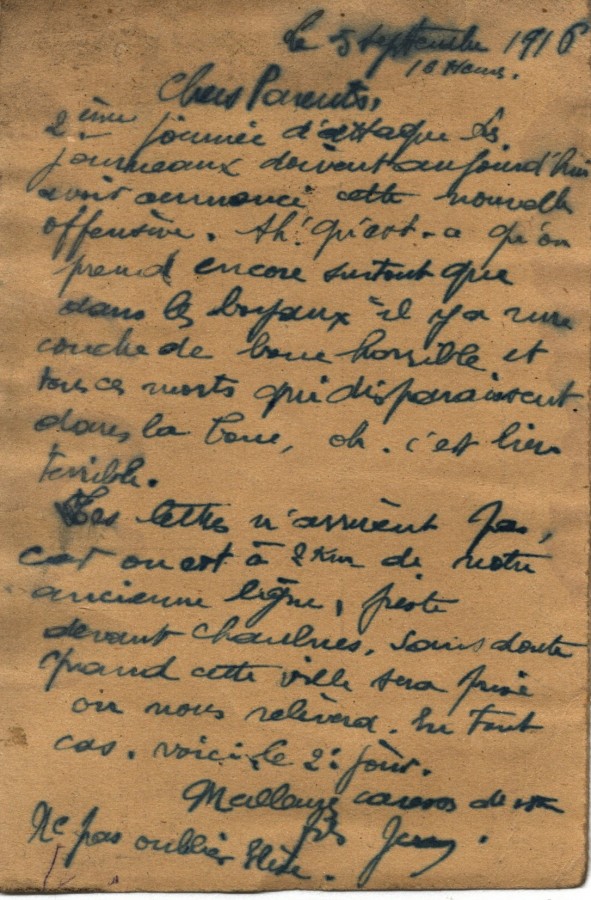 le 5 septembre 1916
16 Heures.
Chers Parents,
2ème journée d'attaque les
journeaux doivent aujourd'hui
avoir annoncé cette nouvelle
offensive. Ah! qu'est-ce qu'on
prend encore surtout que
dans les boyaux il y a une
couche de boue horrible et
tous ces morts qui disparaissent
dans la boue, oh. c'est bien
terrible.
Les lettres n'arrivent pas,
car on est à 2 Km de notre
ancienne ligne, juste
devant Chaulnes. Sans doute
quand cette ville sera prise
on nous relèvera. En tout
cas. voici le 2e jour.
Meilleures caresses de votre
fils
Ne pas oublier